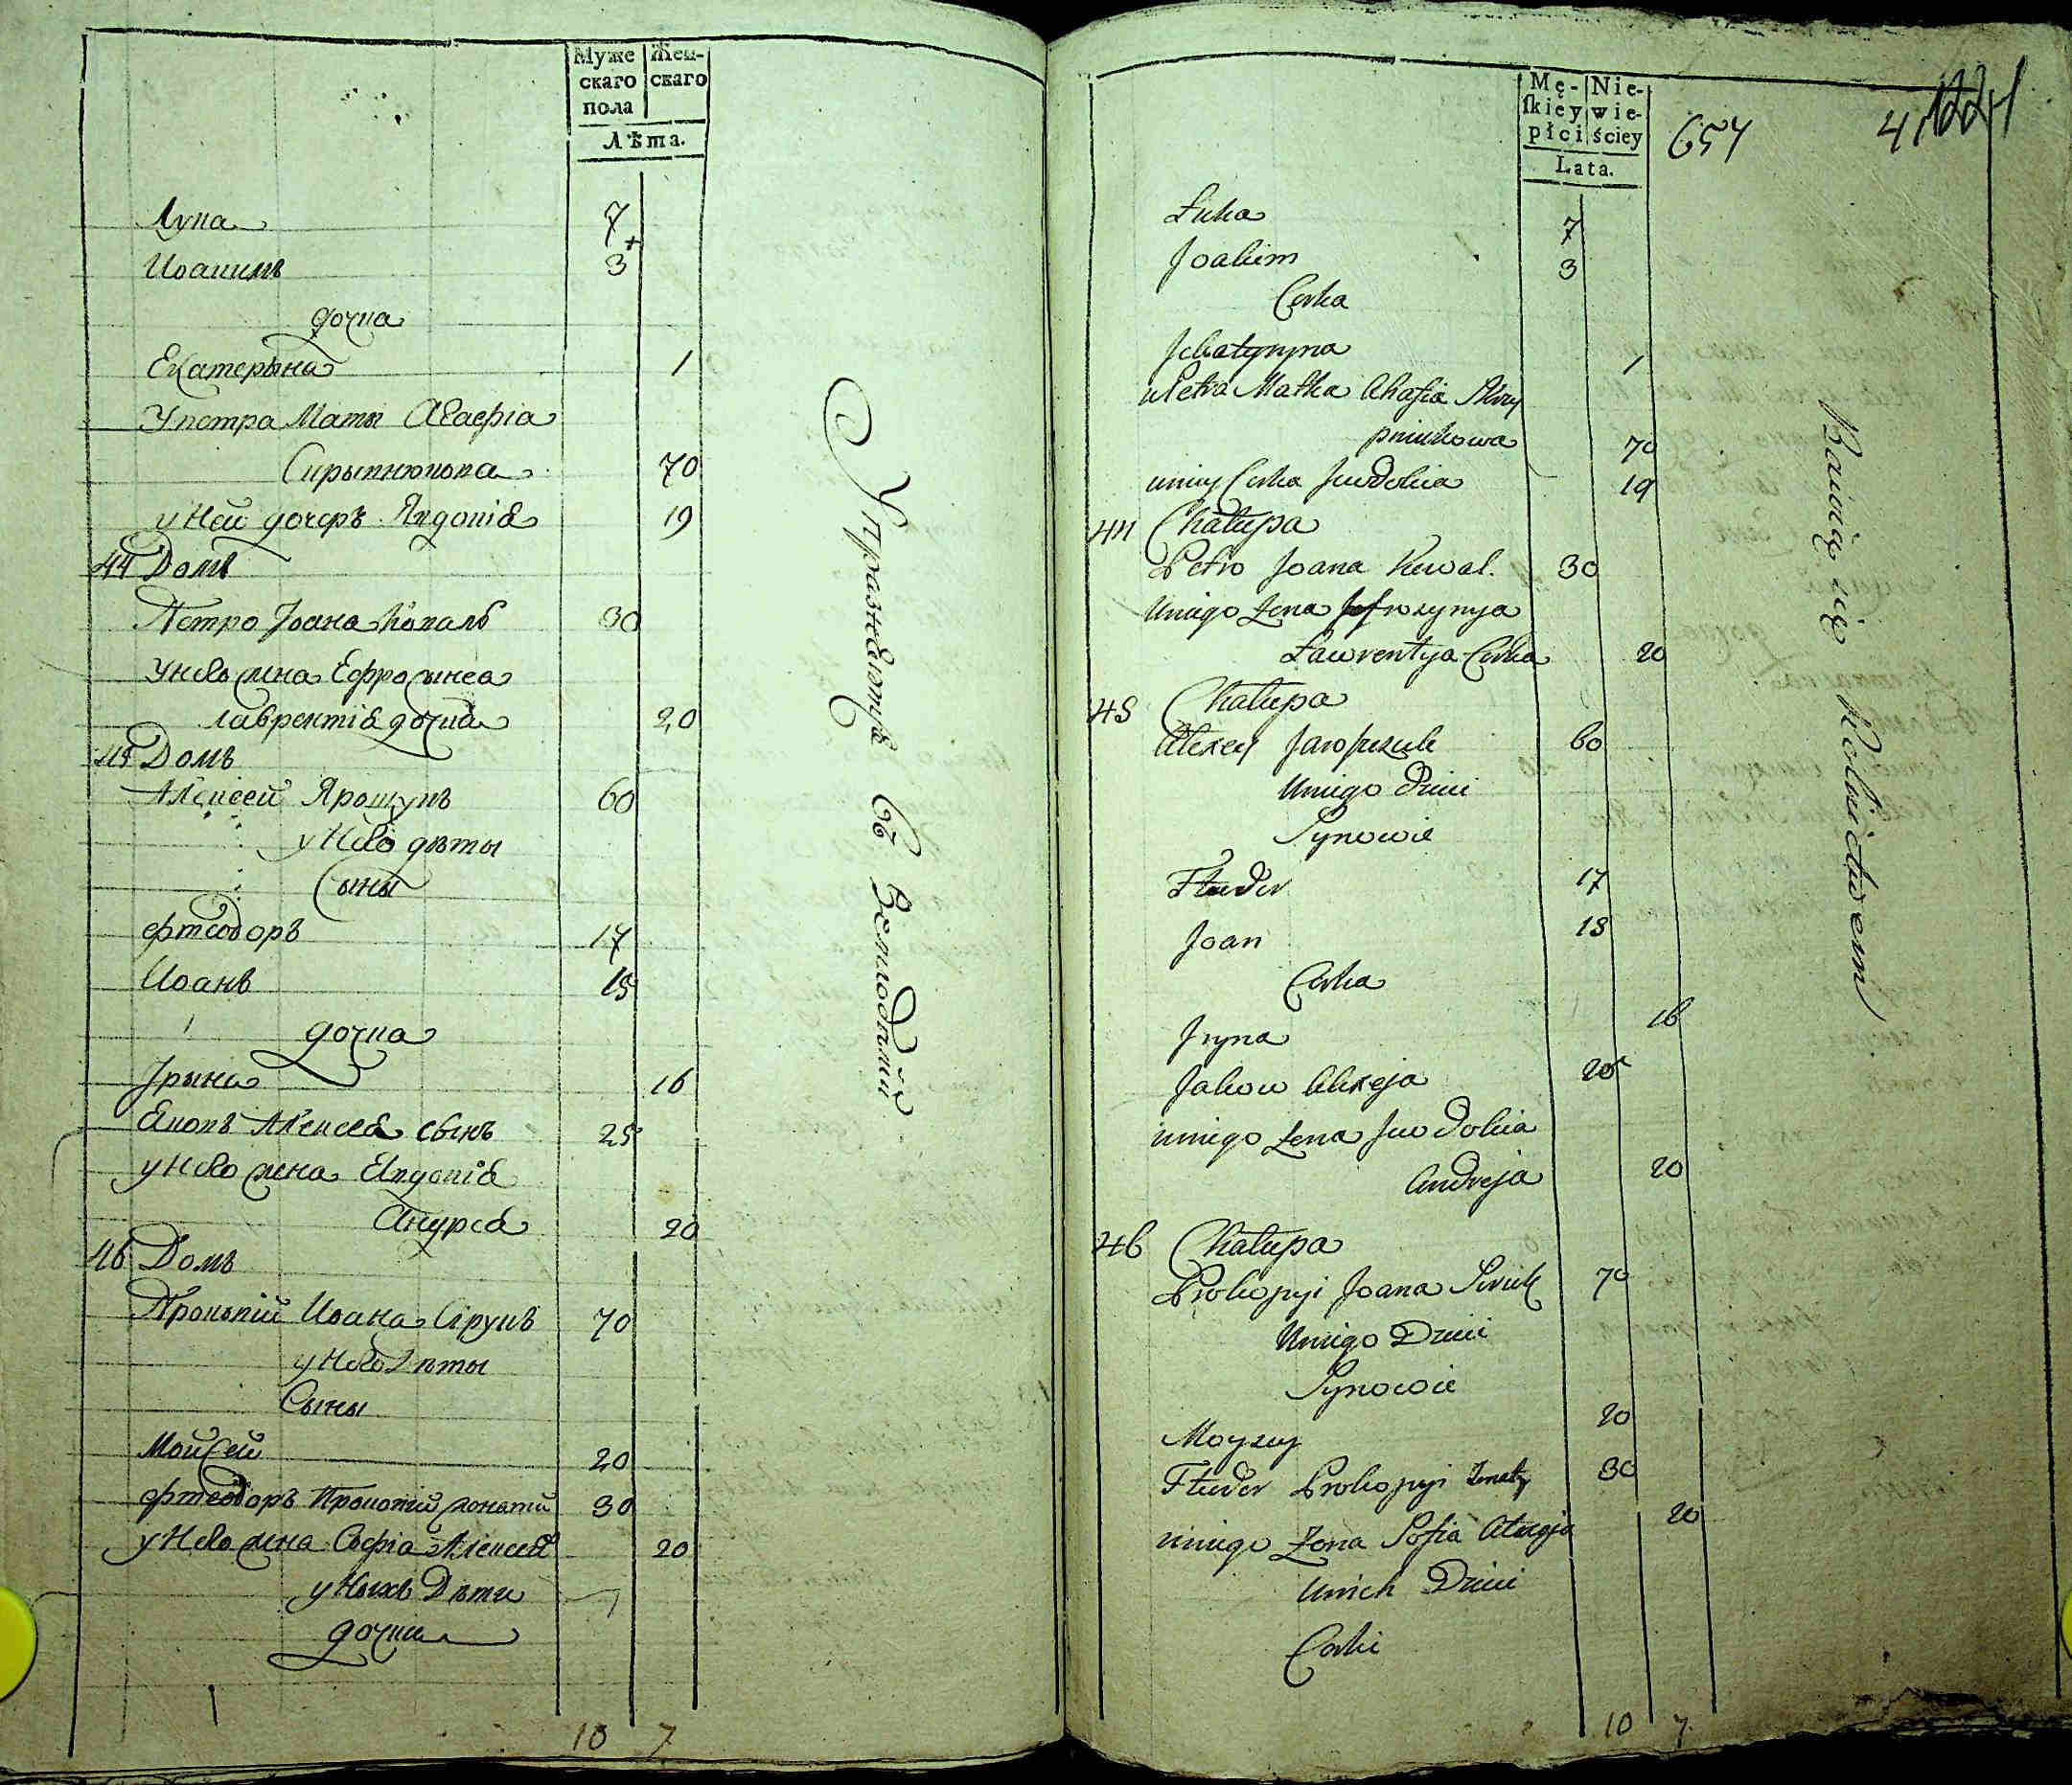 Муже
скаго
пола
Жен-
скаго
Лѣта.
Лука 7
Иоакимъ 3
дочка
Екатерына 1
У петра Маты Агафіа
Скрыпнюкова 70
у Ней дочеръ Явдокіа 19
44 Домъ
Петро Іоана Коваль 30
У него жена Ефросынеа
лаврентіа дочка 20
45 Домъ
Алексей Ярошукъ 60
у Него дѣты
Сыны
фтеодоръ 17
Иоанъ 15
дочка
Ірына 16
Яковъ Алексеа сынъ 25
у Него жена Явдокіа
Андреа 20
46 Домъ
Прокопій Иоана 70
у Него Дѣты
Сыны
Мойсей 20
фтеодоръ Прокопій жонатій 30
у Него жена Софіа Алексеа 20
у Ныхъ Дѣти
дочки
10 7
Упражняются въ Земледѣліи
Mę-
ſkiey
płci
Nie-
wie-
ściey
Lata.
654
Łuka 7
Joakim 3
Corka
Jekatyryna 1
u Petra Matka Ahafia Skry
pniukowa 70
uniey Corka Jewdokia 19
44 Chałupa
Petro Joana Kowal. 30
Uniego Żona Jefrozynya
Ławrentya Corka 20
45 Chałupa
Alexey Jaroszuk 60
Uniego Dzieci
Synowie
Fteodor 17
Joan 15
Corka
Iryna 16
Jakow Alexeja 25
uniego żona Jewdokia
Andreja 20
46 Chałupa
Prokopyi Joana 70
Uniego Dzieci
Synowie
Moyzey 20
Fteodor Prokopyi Żonaty 30
uniego Żona Sofia Alexeja 20
Unich Dzieci
Corki
10 7
Bawią się Rolnictwem